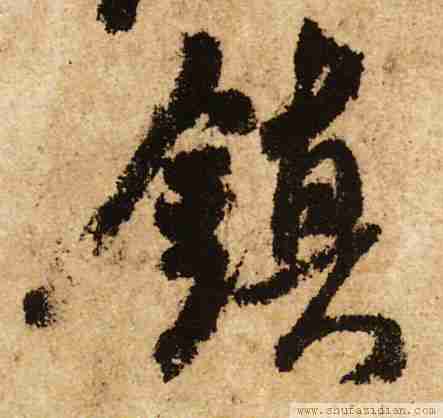 鎮
www.shufazidian.com